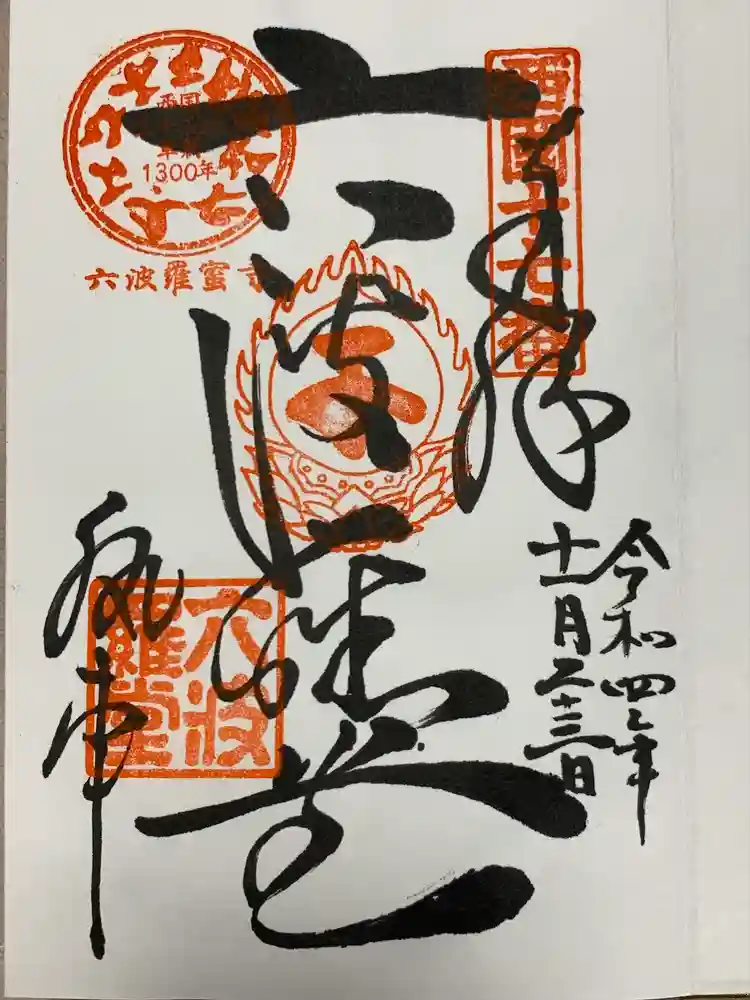 西国十七番
奉拝
令和四年
十一月二十三日
六波羅堂
西国
草創
1300年
六波羅蜜寺
六波
羅堂
執事